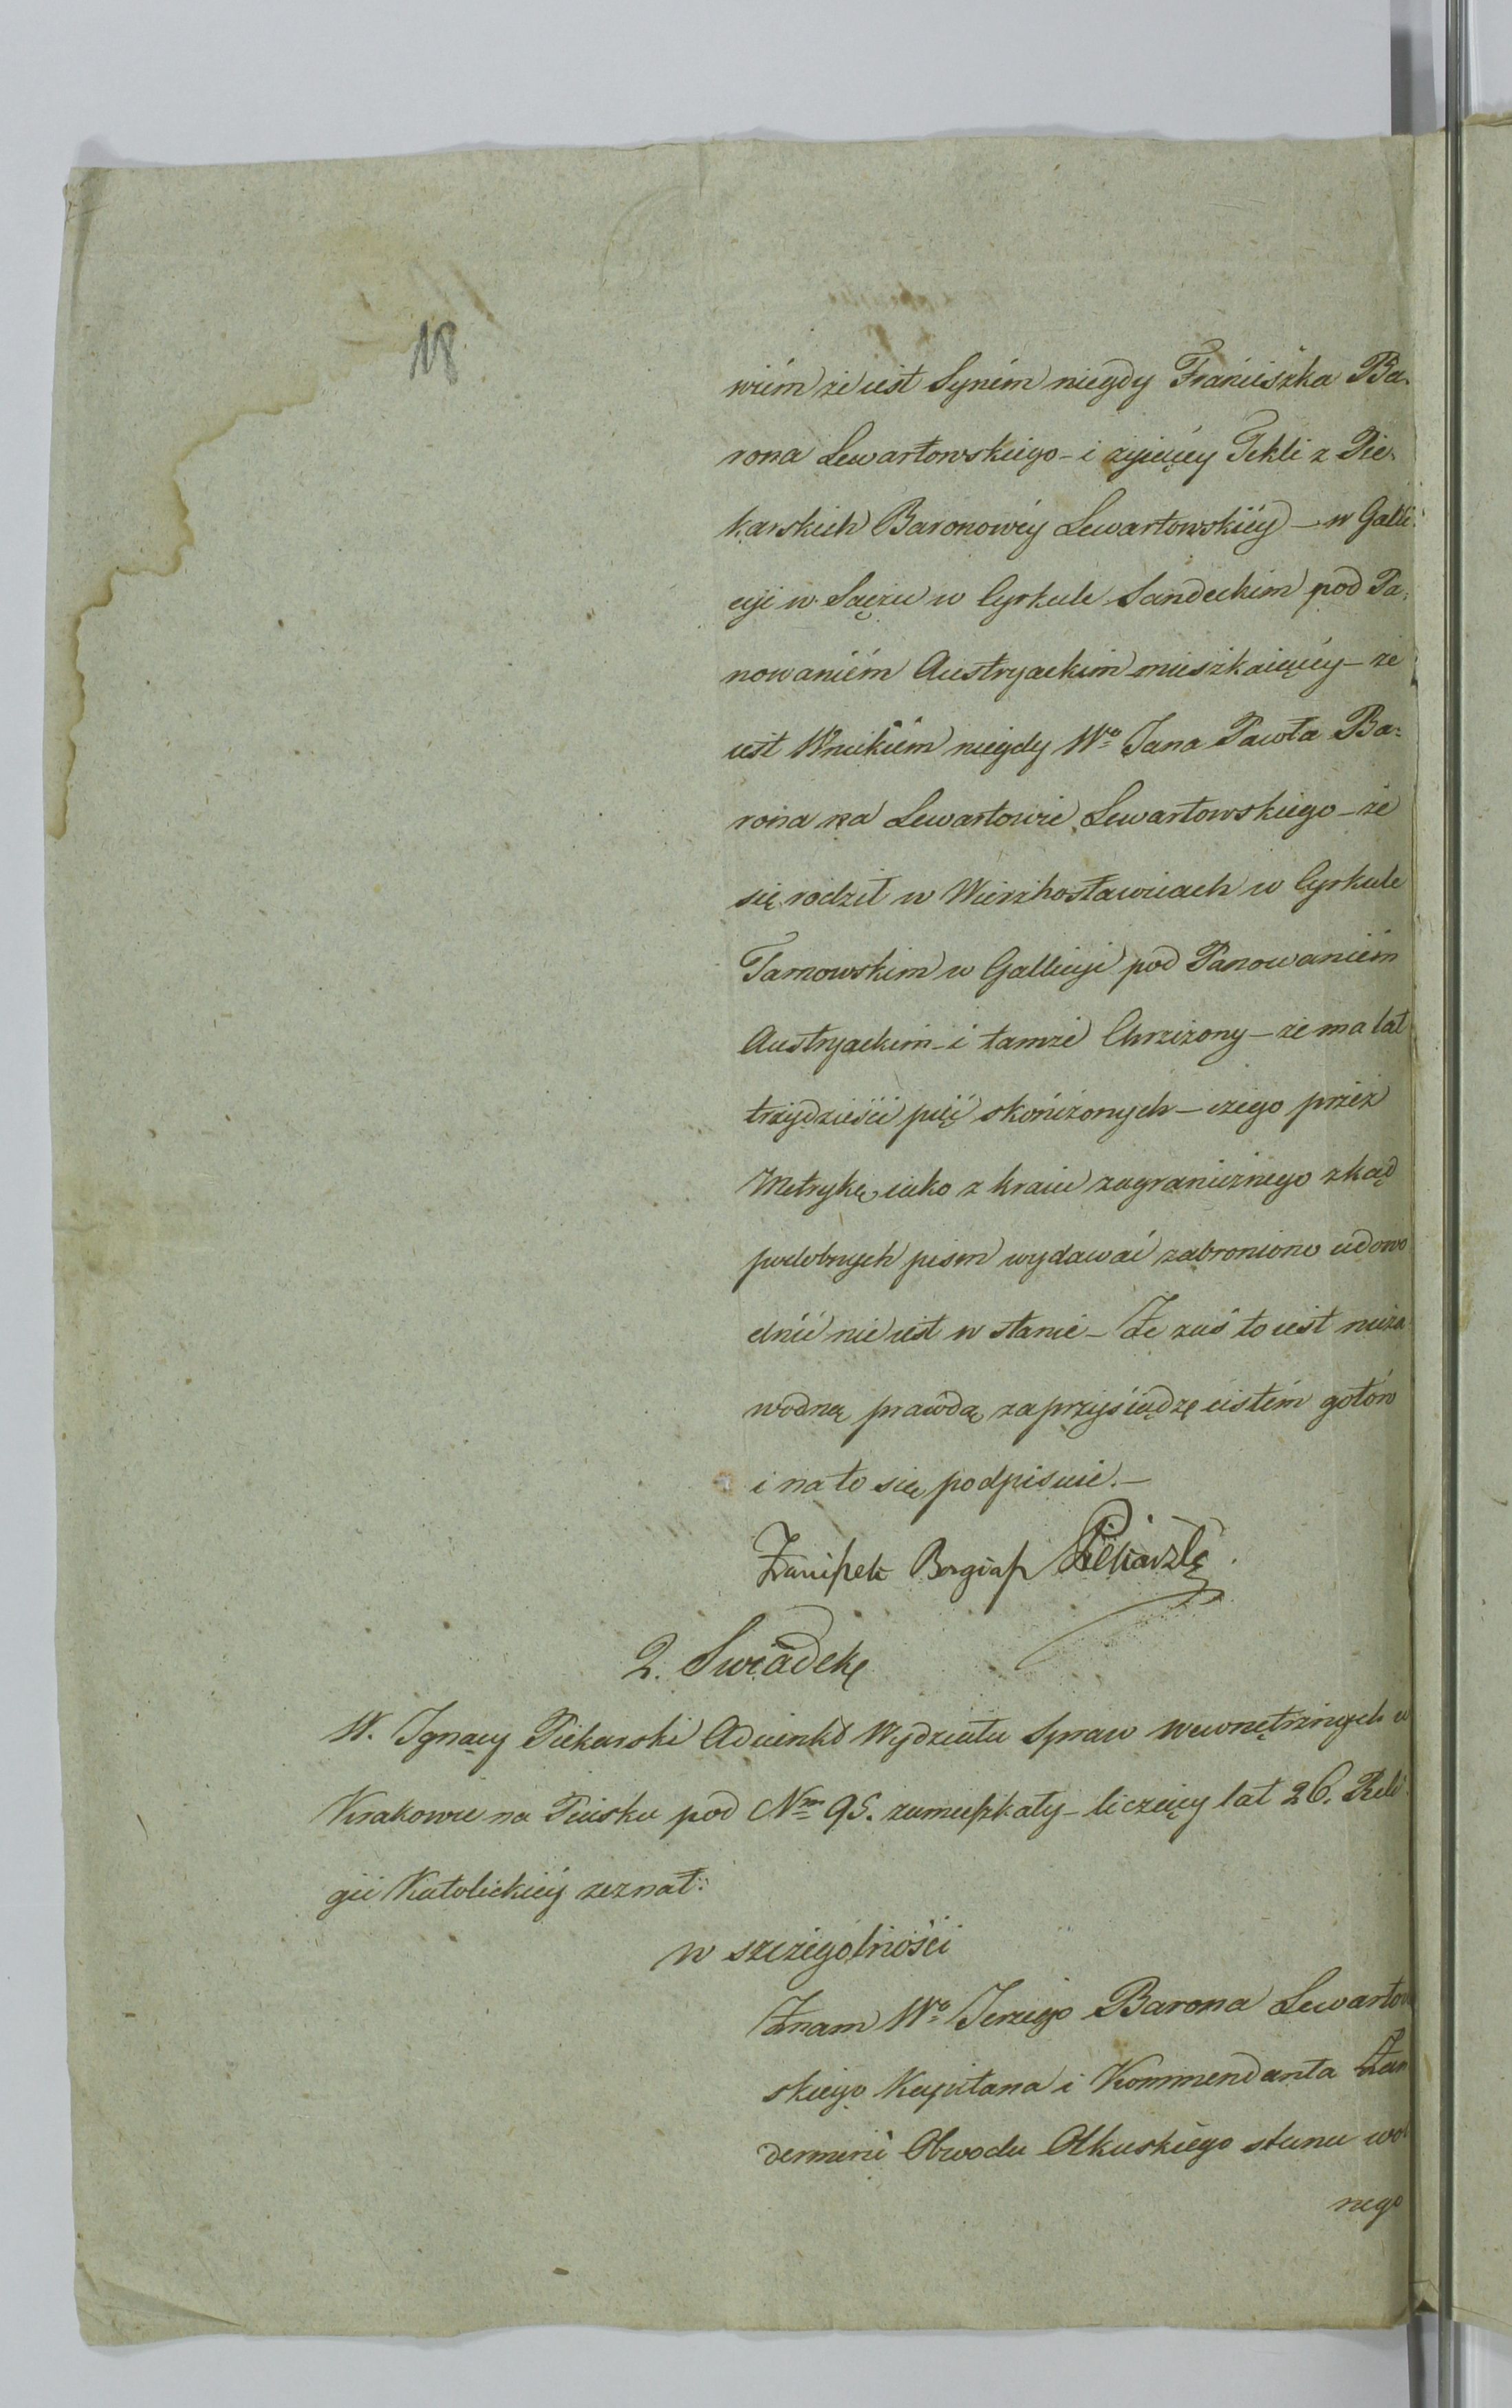 18
wiém że iest Syném niegdy Franciszka Ba-
rona Lewartowskiego – i żyiącéy Tekli z Pie-
karskich Baronowéy Lewartowskiéy – w Galli-
cyi w Sączu w Cyrkule Sandeckim pod Pa-
nowaniém Austryackim mieszkaiącéy – że
iest Wnukiém niegdy Wo Jana Pawła Ba-
rona na Lewartowie Lewartowskiego – że
się rodził w Wierzhosławicach w Cyrkule
Tarnowskim w Gallicyi pod Panowaniém
Austryackim – i tamże Chrzczony – że ma lat
trzydzieści pięć skończonych – czego przez
Metrykę iako z kraiu zagranicznego zkąd
podobnych pism wydawać zabroniono udowo
dnić nie iest w stanie – Że zaś to iest nieza
wodną prawdą zaprzysiądz iestem gotów
i na to się podpisuię. –
Franciszek Borgiasz
2. Swiadek
W. Ignacy Piekarski Adiunkt Wydziału Spraw Wewnętrznych w
Krakowie na Piasku pod Nrm 95. zamieszkały – liczący lat 26. Reli
gii Katolickiéy zeznał:
w szczególności
Znam Wo Jerzego Barona Lewartow
skiego Kapitana i Kommendanta Żan
dermerii Obwodu Olkuskiego stanu wol
nego